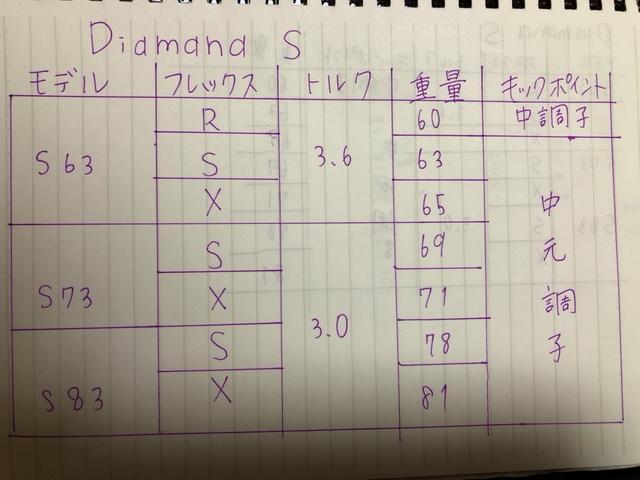 Diamana S
モデル フレックス トルク 重量 キックポイント
R 60 中調子
S63 S 3.6 63
X 65 中
S 69 元
S73 X 71 調
3.0
S 78 子
S83 X 81